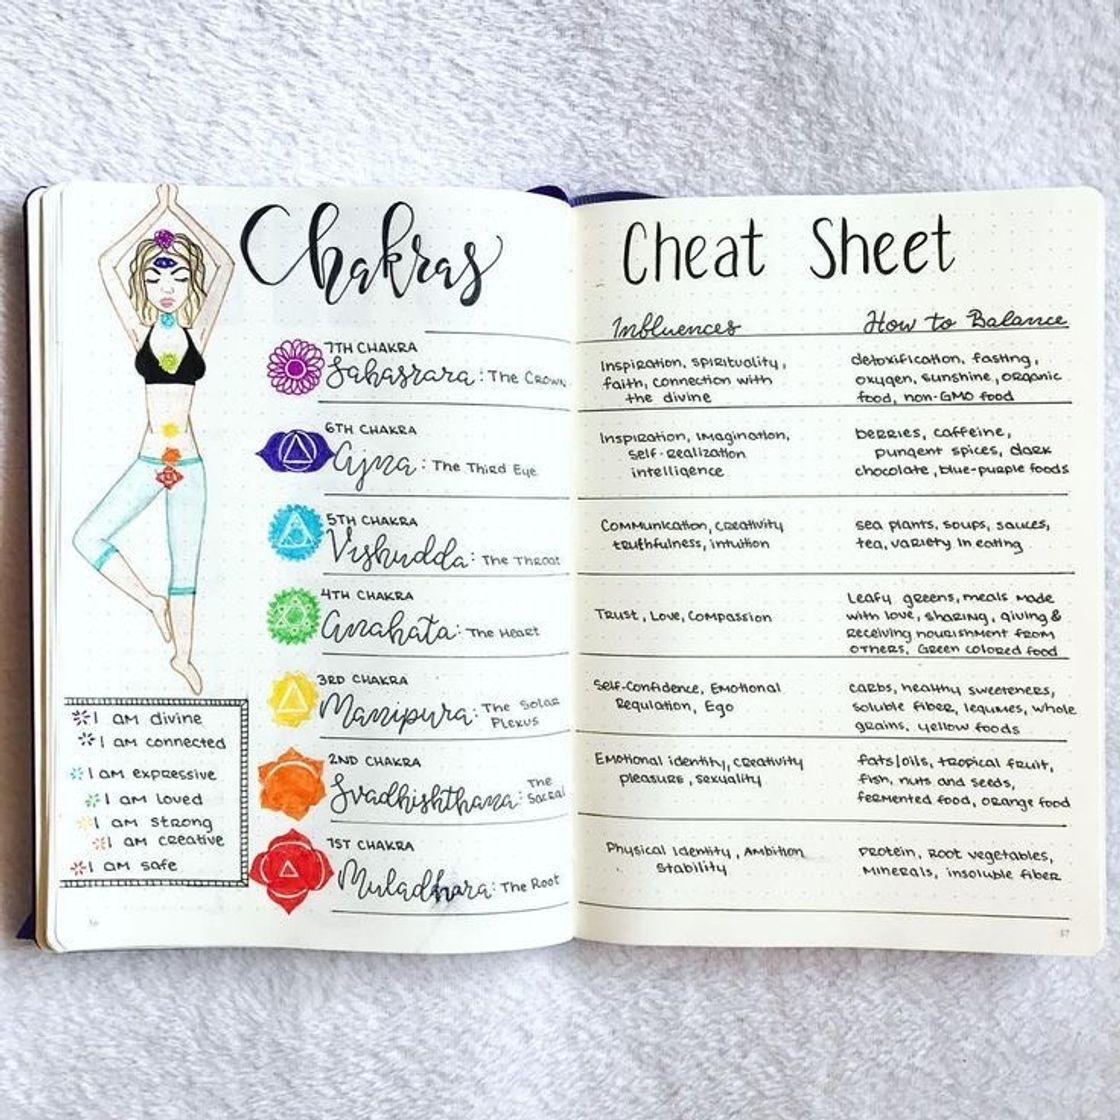 Chakras
7TH CHAKRA
Sahasrara: The Crown
6TH CHAKRA
Ajna: The Third Eye
5TH CHAKRA
Vishudda: The Throat
4TH CHAKRA
Anahata: The Heart
3RD CHAKRA
Manipura: The Solar
Plexus
2ND CHAKRA
Svadhishthana: The
Sacral
1ST CHAKRA
Muladhara: The Root
I am divine
I am connected
I am expressive
I am loved
I am strong
I am creative
I am safe
Cheat Sheet
Influences
How to Balance
Inspiration, spirituality,
faith, connection with
the divine
detoxification, fasting,
oxygen, sunshine, organic
food, non-GMO food
Inspiration, imagination,
self-realization
intelligence
berries, caffeine,
pungent spices, dark
chocolate, blue-purple foods
Communication, creativity
truthfulness, intuition
sea plants, soups, sauces,
tea, variety in eating
Trust, Love, Compassion
Leafy greens, meals made
with love, sharing, giving &
receiving nourishment from
others, Green colored food
Self-Confidence, Emotional
Regulation, Ego
carbs, healthy sweeteners,
soluble fiber, legumes, whole
grains, yellow foods
Emotional identity, creativity
pleasure, sexuality
fats/oils, tropical fruit,
fish, nuts and seeds,
fermented food, orange food
Physical Identity, Ambition
Stability
Protein, Root vegetables,
Minerals, insoluble fiber
37